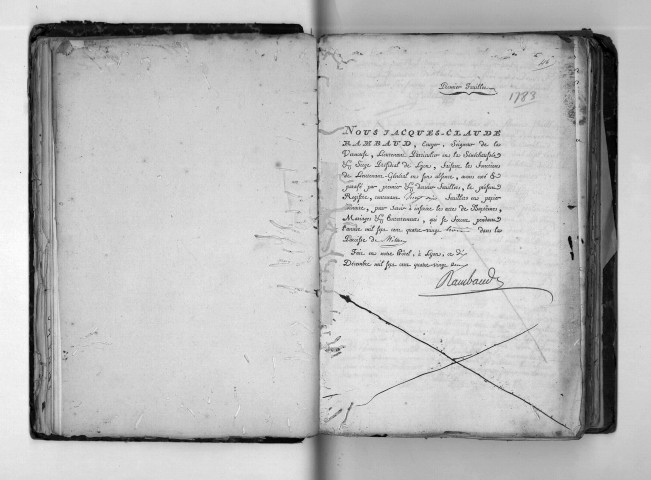 Dernier Feuillet
1783
NOUS JACQUES-CLAUDE
RAMBAUD, Ecuyer, Seigneur de la
Vernouse, Lieutenant Particulier en la Sénéchaussée
& Siege Présidial de Lyon, faisant les fonctions
de Lieutenant-Général en son absence, avons coté &
paraphé par premier & dernier feuillets, le présent
Registre, contenant feuillets en papier
timbré, pour servir à inscrire les actes de Baptêmes,
Mariages & Enterremens, qui se feront pendant
l'année mil sept cent quatre-vingt dans la
Paroisse de
Fait en notre Hôtel, à Lyon, ce
Décembre mil sept cent quatre-vingt
Rambaud